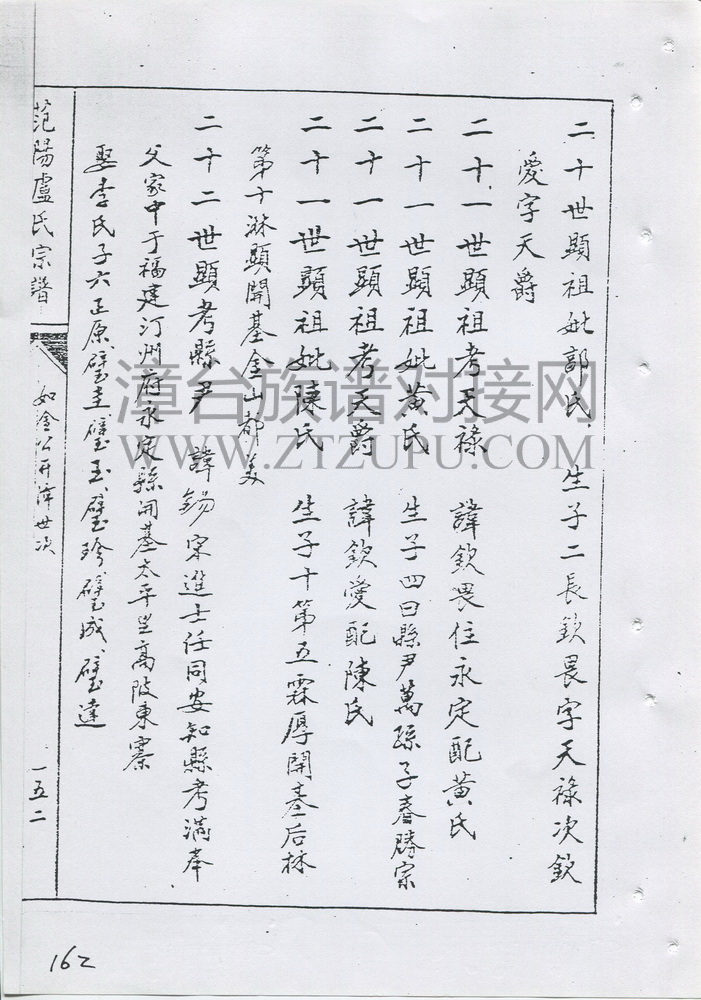 二十世顯祖妣郭氏、生子二長欽畏字天祿次欽
愛字天爵
二十一世顯祖考天祿 諱欽畏住永定配黃氏
二十一世顯祖妣黃氏 生子四曰縣尹萬孫子春勝宗
二十一世顯祖考天爵 諱欽愛配陳氏
二十一世顯祖妣陳氏 生子十第五霖厚開基后林
第十淋顯開基金山都美
二十二世顯考縣尹 諱錫宋進士任同安知縣考滿奉
父家中于福建汀州府永定縣開基太平里高陂東寨
娶李氏子六正原、璧圭、璧玉、璧珍、璧成、璧達
范陽盧氏宗譜
如金公開漳世次
一五二
162
漳台族谱对接网
WWW.ZTZUPU.COM